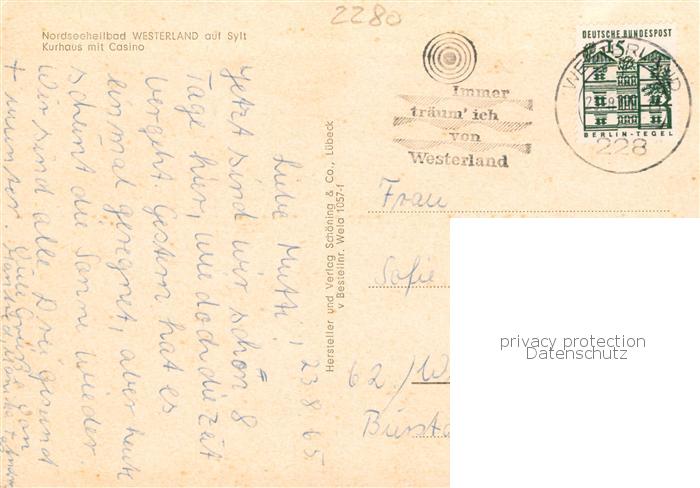 2280
Nordseeheilbad WESTERLAND auf Sylt
Kurhaus mit Casino
Immer
träum' ich
von
Westerland
DEUTSCHE BUNDESPOST
15
BERLIN-TEGEL
228
Hersteller und Verlag Schöning & Co., Lübeck
v Bestellnr. Wela 1057-f
Frau
Sofie
62/W
privacy protection
Datenschutz
23 8 65
Liebe Mutti,
Jetzt sind wir schon 8
Tage hier, wie doch die Zeit
vergeht. Gestern hat es
einmal geregnet, aber heute
scheint die Sonne wieder.
Wir sind alle Drei gesund
+ munter.
Viele Grüße von